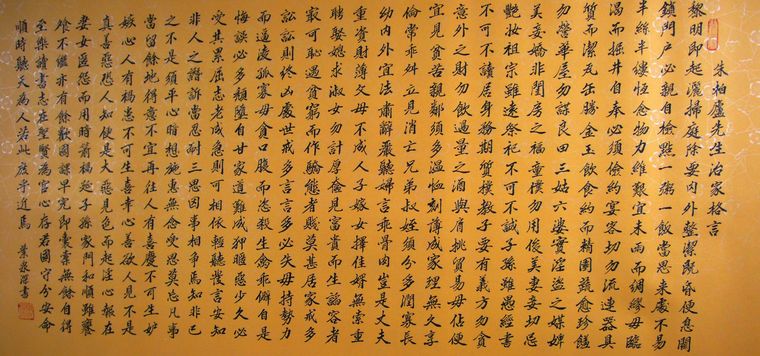 朱柏廬先生治家格言
黎明即起灑掃庭除要內外整潔既昏便息關
鎖門戶必親自檢點一粥一飯當思來處不易
半絲半縷恆念物力維艱宜未雨而綢繆毋臨
渴而掘井自奉必須儉約宴客切勿流連器具
質而潔瓦缶勝金玉飲食約而精園蔬愈珍饈
勿營華屋勿謀良田三姑六婆實淫盜之媒婢
美妾嬌非閨房之福童僕勿用俊美妻妾切忌
艷妝祖宗雖遠祭祀不可不誠子孫雖愚經書
不可不讀居身務期質樸教子要有義方勿貪
意外之財勿飲過量之酒與肩挑貿易毋佔便
宜見貧苦親鄰須多溫恤刻薄成家理無久享
倫常乖舛立見消亡兄弟叔姪須分多潤寡長
幼內外宜法肅辭嚴聽婦言乖骨肉豈是丈夫
重貲財薄父母不成人子嫁女擇佳婿無索重
聘娶媳求淑女勿計厚奩見富貴而生諂容者
最可恥遇貧窮而作驕態者賤莫甚居家戒多
訟訟則終凶處世戒多言言多必失毋持勢力
而逼凌孤寡毋貪口腹而恣殺生禽乖僻自是
悔誤必多頹墮自甘家道難成狎暱惡少久必
受其累屈志老成急則可相依輕聽發言安知
非人之譖訴當忍耐三思因事相爭焉知非己
之不是須平心暗想施惠無念受恩莫忘凡事
當留餘地得意不宜再往人有喜慶不可生妒
嫉心人有禍患不可生喜幸心善欲人見不是
真善惡恐人知便是大惡見色而起淫心報在
妻女匿怨而用暗箭禍延子孫家門和順雖饔
飧不繼亦有餘歡國課早完即囊橐無餘自得
至樂讀書志在聖賢為官心存君國守分安命
順時聽天為人若此庶乎近焉 葉泉深書